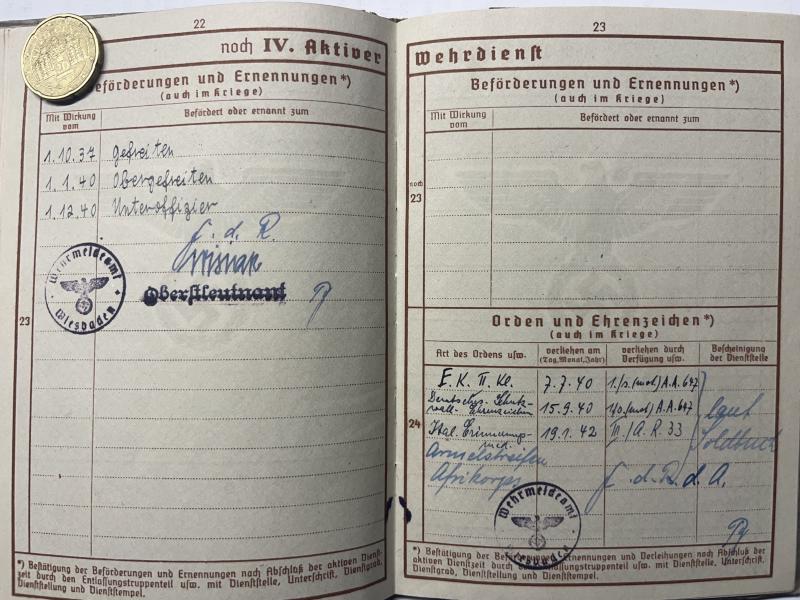 22
noch IV. Aktiver
Beförderungen und Ernennungen*)
(auch im Kriege)
Mit Wirkung vom
Befördert oder ernannt zum
1.10.37 Gefreiten
1.1.40 Obergefreiten
1.12.40 Unteroffizier
f. d. R.
Oberstleutnant
Wehrmeldeamt
Wiesbaden
23
*) Bestätigung der Beförderungen und Ernennungen nach Abschluß der aktiven Dienst-
zeit durch den Entlassungstruppenteil usw. mit Dienststelle, Unterschrift, Dienstgrad,
Dienststellung und Dienststempel.
23
Wehrdienst
Beförderungen und Ernennungen*)
(auch im Kriege)
Mit Wirkung vom
Befördert oder ernannt zum
noch
23
Orden und Ehrenzeichen*)
(auch im Kriege)
Art des Ordens usw.
verliehen am (Tag, Monat, Jahr)
verliehen durch Verfügung usw.
Bescheinigung der Dienststelle
E.K. II. Kl. 7.7.40 A.A. 647
Deutsches Schutz-
wall-Ehrenzeichen 15.9.40 A.A. 647
24
Ital. Erinnerungs- 19.1.42 III/A.R. 33
med.
laut
Soldbuch
Ärmelstreifen
Afrikorps
f. d. R. d. A.
Wehrmeldeamt
Wiesbaden
*) Bestätigung der Beförderungen, Ernennungen und Verleihungen nach Abschluß der
aktiven Dienstzeit durch den Entlassungstruppenteil usw. mit Dienststelle, Unterschrift,
Dienstgrad, Dienststellung und Dienststempel.